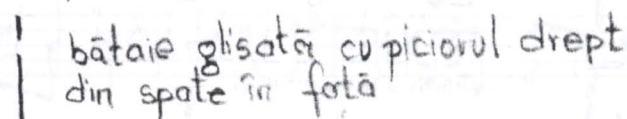 bătaie glisată cu piciorul drept
din spate în fată